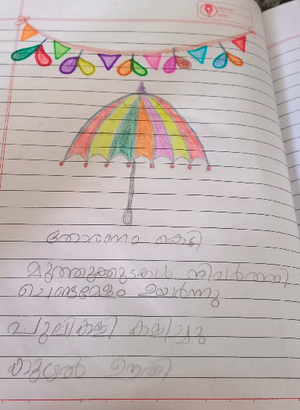 തോരണം കെട്ടി
മുത്തുക്കുടകൾ നിവർത്തി
ചെണ്ടമേളം ഉയർന്നു
പുലികളി കളിച്ചു